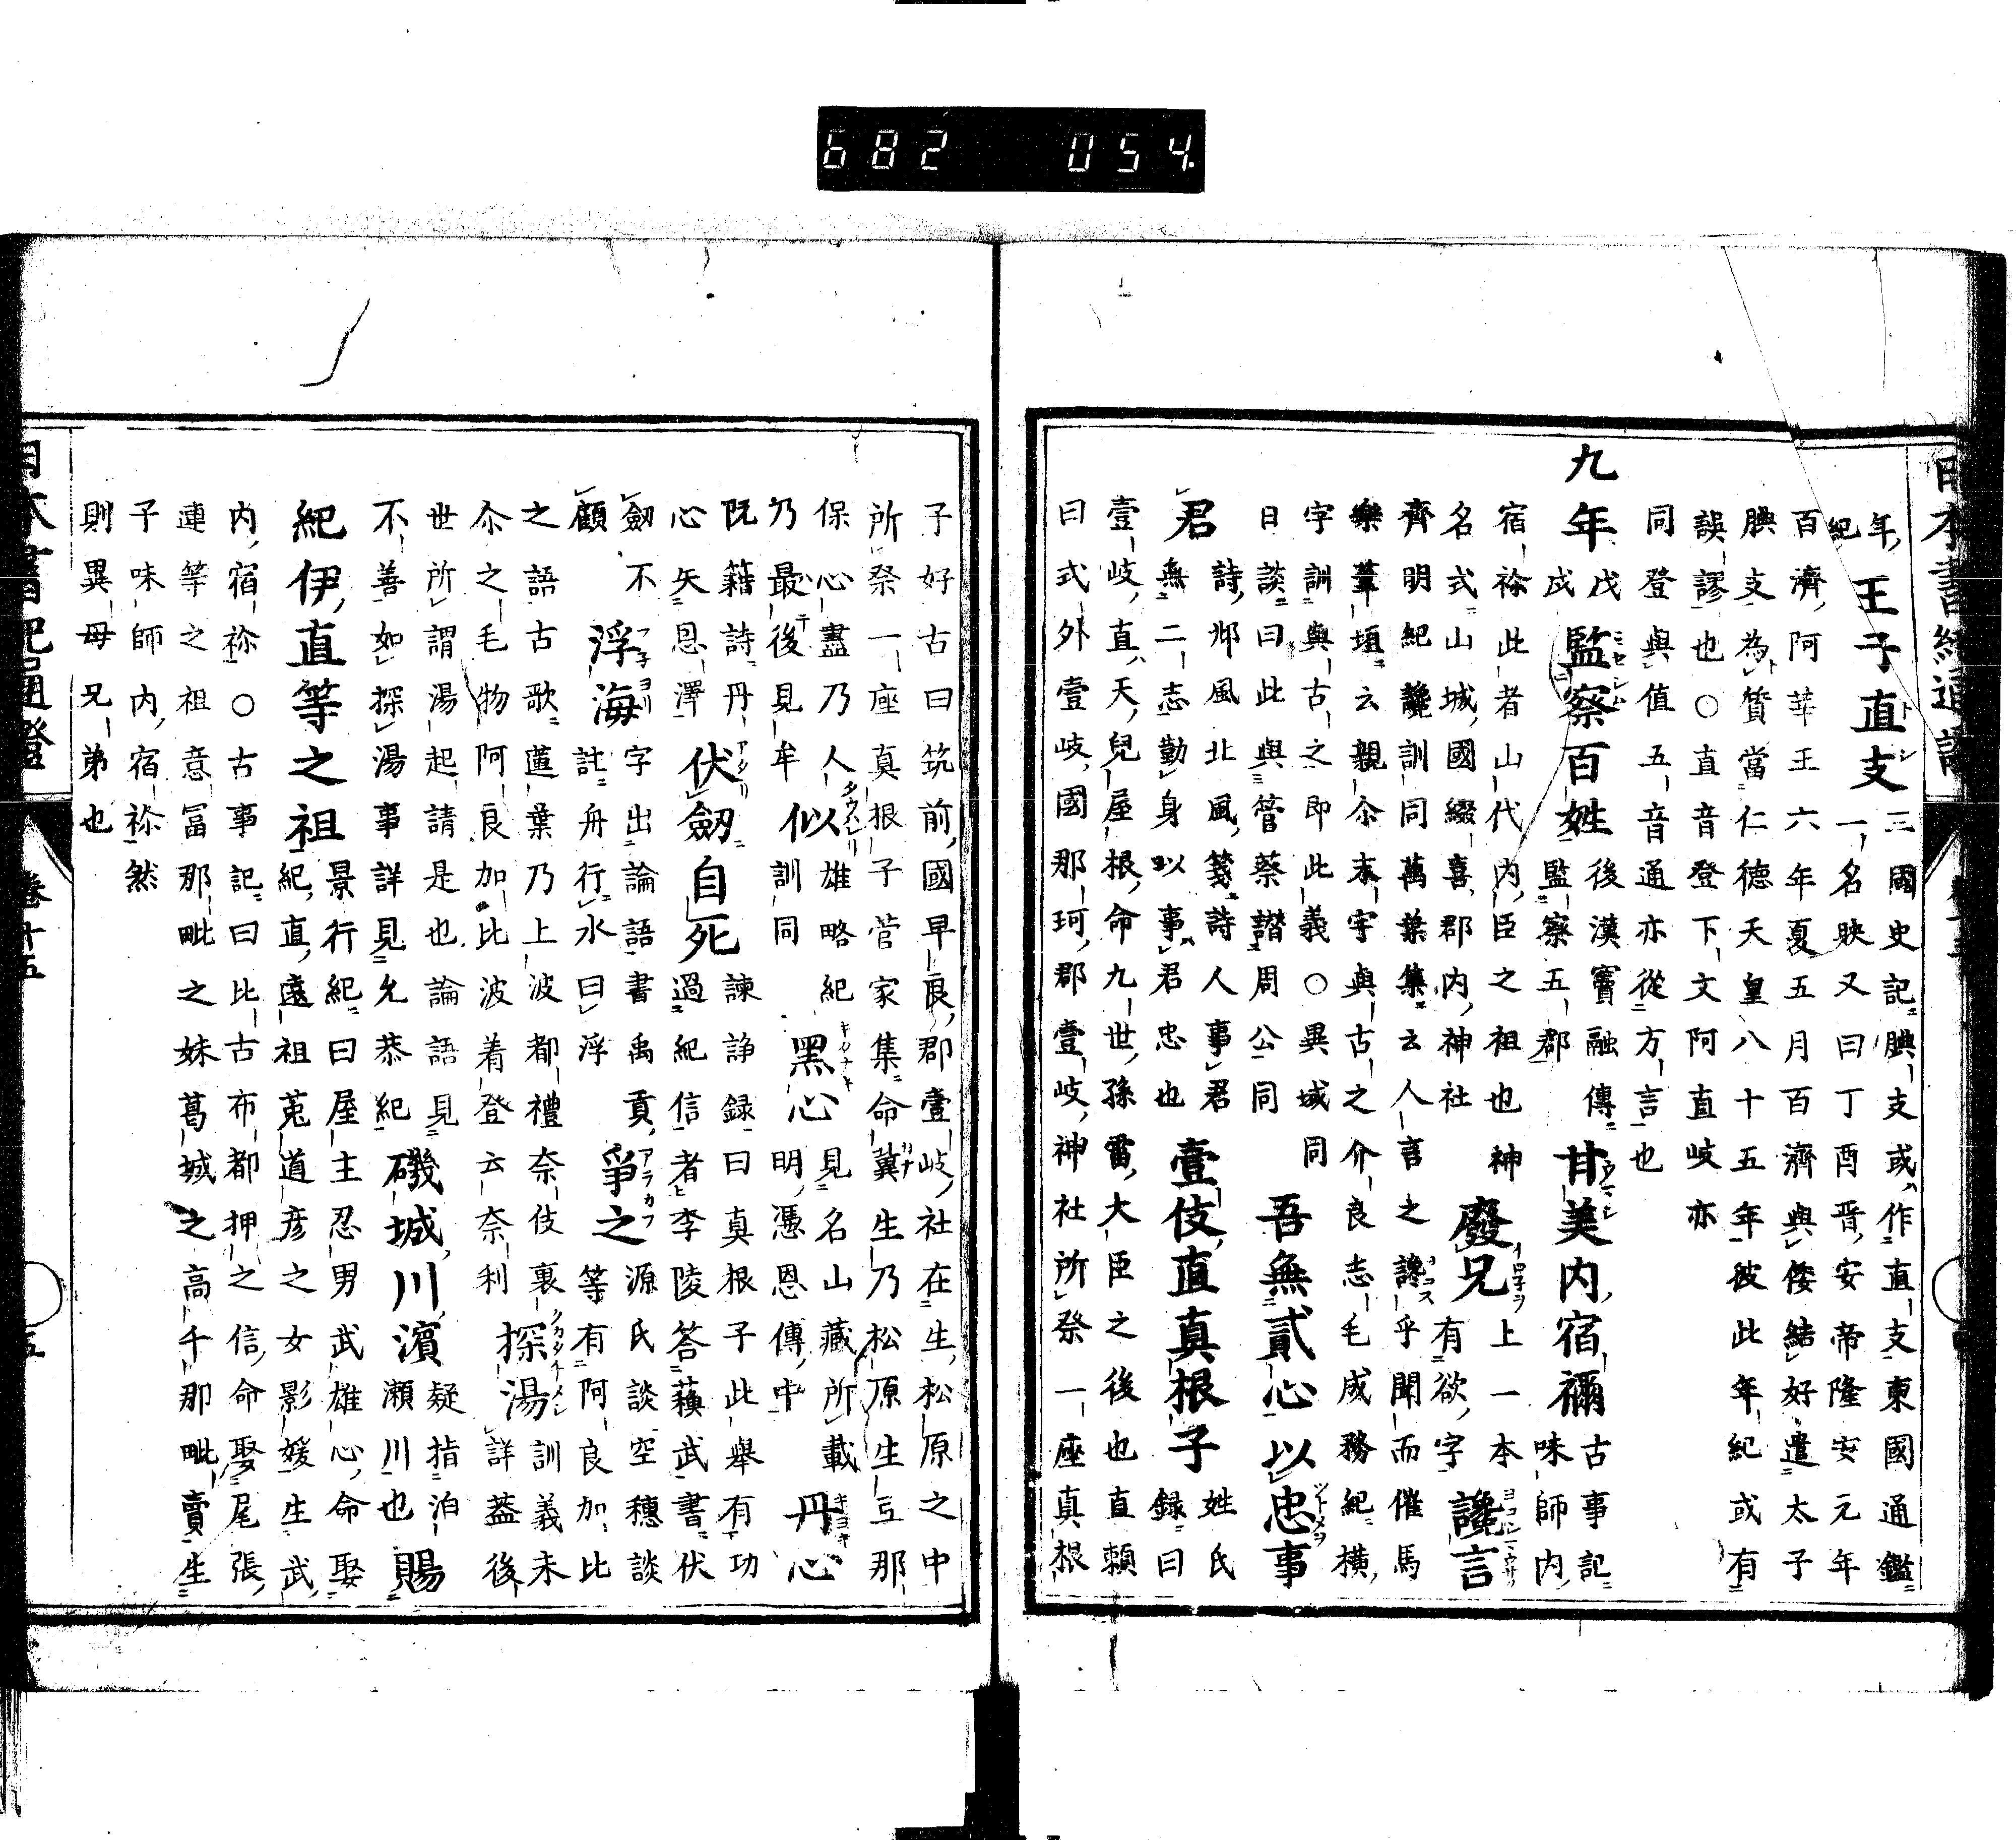 年紀王子直支三國史記腆支或作直支東國通鑑
一名映又曰丁酉晋安帝隆安元年
百濟阿莘王六年夏五月百濟與倭結好遣太子
腆支為質當仁德天皇八十五年彼此年紀或有
誤謬也○直音登下文阿直岐亦
同登與値五音通亦從方言也
九年戊戌監察百姓後漢竇融傳監察五郡甘美内宿禰古事記味師内
宿祢此者山代内臣之祖也神
名式山城國綴喜郡内神社廢兄上一本有欲字讒言
齊明紀讒訓同萬葉集云人言之讒乎聞而催馬
樂葦垣云親尒末宇與古之介良志毛成務紀横
字訓與古之即此義○異域同
日談曰此與管蔡譖周公同吾無貳心以忠事
君詩邶風北風箋詩人事君無二志勤身以事君忠也壹伎直真根子姓氏録曰
壹岐直天兒屋根命九世孫雷大臣之後也直頼
曰式外壹岐國那珂郡壹岐神社所祭一座真根
子好古曰筑前國早良郡壹岐社在生松原之中
所祭一座真根子菅家集命冀生乃松原生亘那
保心盡乃人
乃最後見牟似雄略紀訓同黑心見名山藏所載明馮恩傳中丹心
阮籍詩丹
心矢恩澤伏劔自死諫諍録曰真根子此舉有功過紀信者李陵答蘇武書伏
劔不
顧浮海字出論語書禹貢註舟行水曰浮爭之源氏談空穗談等有阿良加比
之語古歌蓮葉乃上波都禮奈伎裏
尒之毛物阿良加比波着登云奈利探湯訓義未詳蓋後
世所謂湯起請是也論語見
不善如探湯事詳見允恭紀磯城川濱疑指泊瀬川也賜
紀伊直等之祖景行紀曰屋主忍男武雄心命娶紀直遠祖菟道彦之女影媛生武
内宿祢○古事記曰比古布都押之信命娶尾張
連等之祖意冨那毗之妹葛城之高千那毗賣生
子味師内宿祢然
則異母兄弟也
日本書紀通證
卷十五
五
682 054